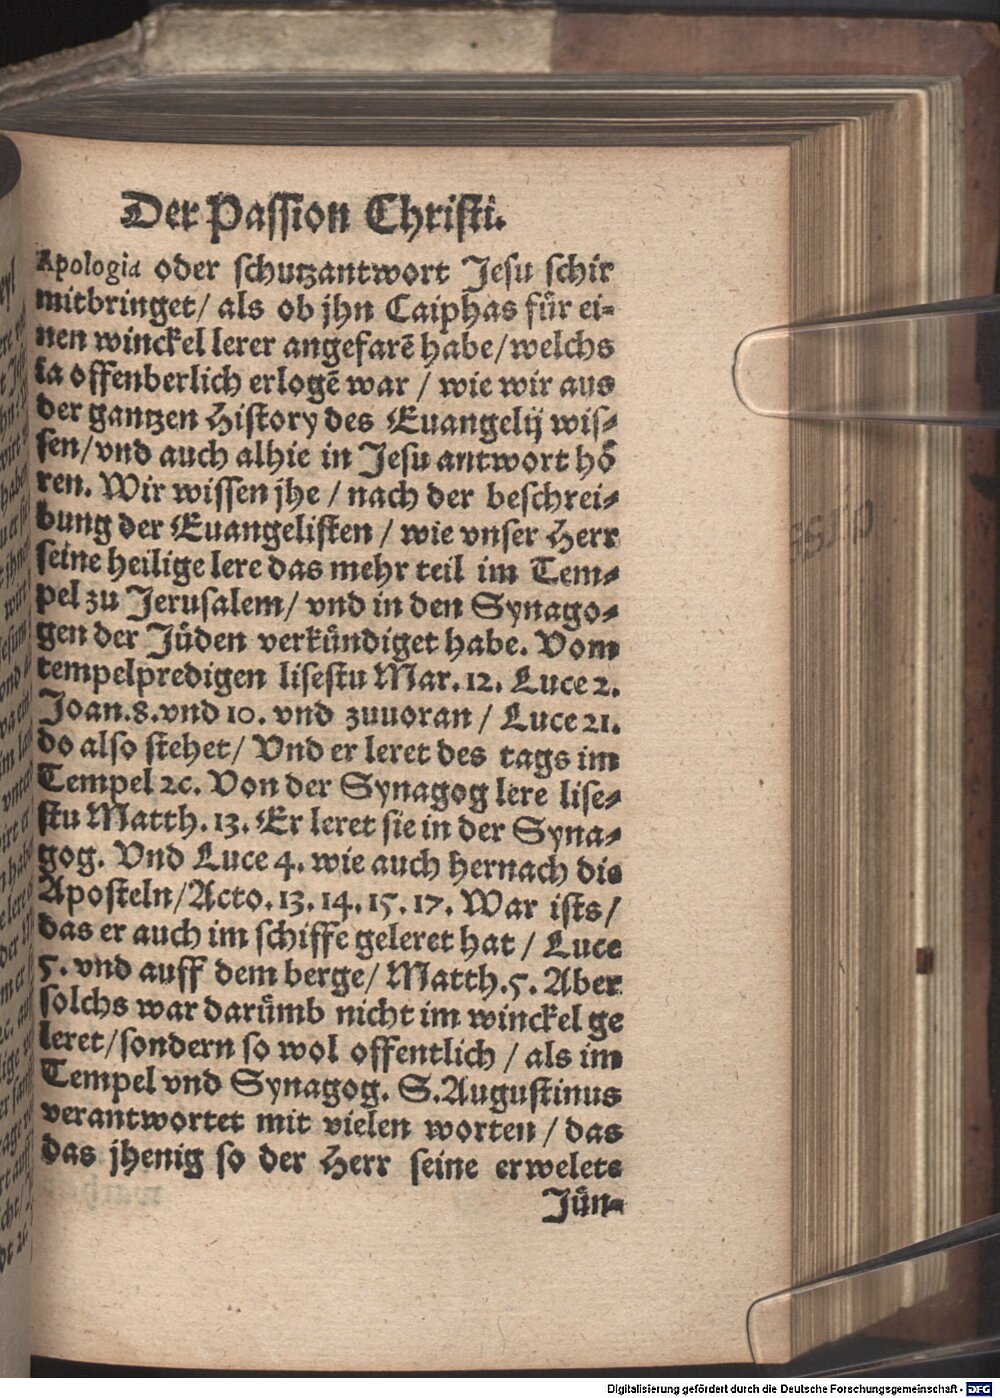 Der Passion Christi.
Apologia oder schutzantwort Jesu schir
mitbringet/ als ob jhn Caiphas für ei-
nen winckel lerer angefarē habe/welchs
ia offenberlich erlogē war / wie wir aus
der gantzen History des Euangelij wis-
sen/vnd auch alhie in Jesu antwort hö
ren. Wir wissen jhe / nach der beschrei-
bung der Euangelisten / wie vnser Herr
seine heilige lere das mehr teil im Tem-
pel zu Jerusalem/ vnd in den Synago-
gen der Jüden verkündiget habe. Vom
tempelpredigen lisestu Mar. 12. Luce 2.
Joan. 8. vnd 10. vnd zuuoran / Luce 21.
do also stehet/ Vnd er leret des tags im
Tempel 2c. Von der Synagog lere lise-
stu Matth. 13. Er leret sie in der Syna-
gog. Vnd Luce 4. wie auch hernach die
Aposteln/Acto. 13. 14. 15. 17. War ists/
das er auch im schiffe geleret hat / Luce
5. vnd auff dem berge/ Matth. 5. Aber
solchs war darümb nicht im winckel ge
leret/sondern so wol offentlich / als im
Tempel vnd Synagog. S. Augustinus
verantwortet mit vielen worten / das
das jhenig so der Herr seine erwelete
Jün-
Digitalisierung gefördert durch die Deutsche Forschungsgemeinschaft - DFG